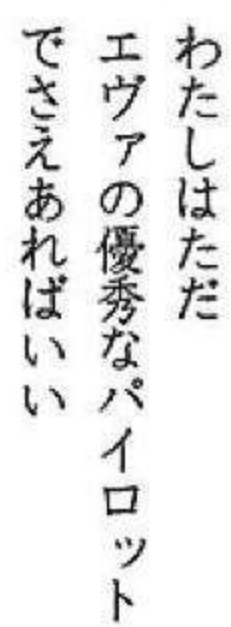 わたしはただ
エヴァの優秀なパイロット
でさえあればいい